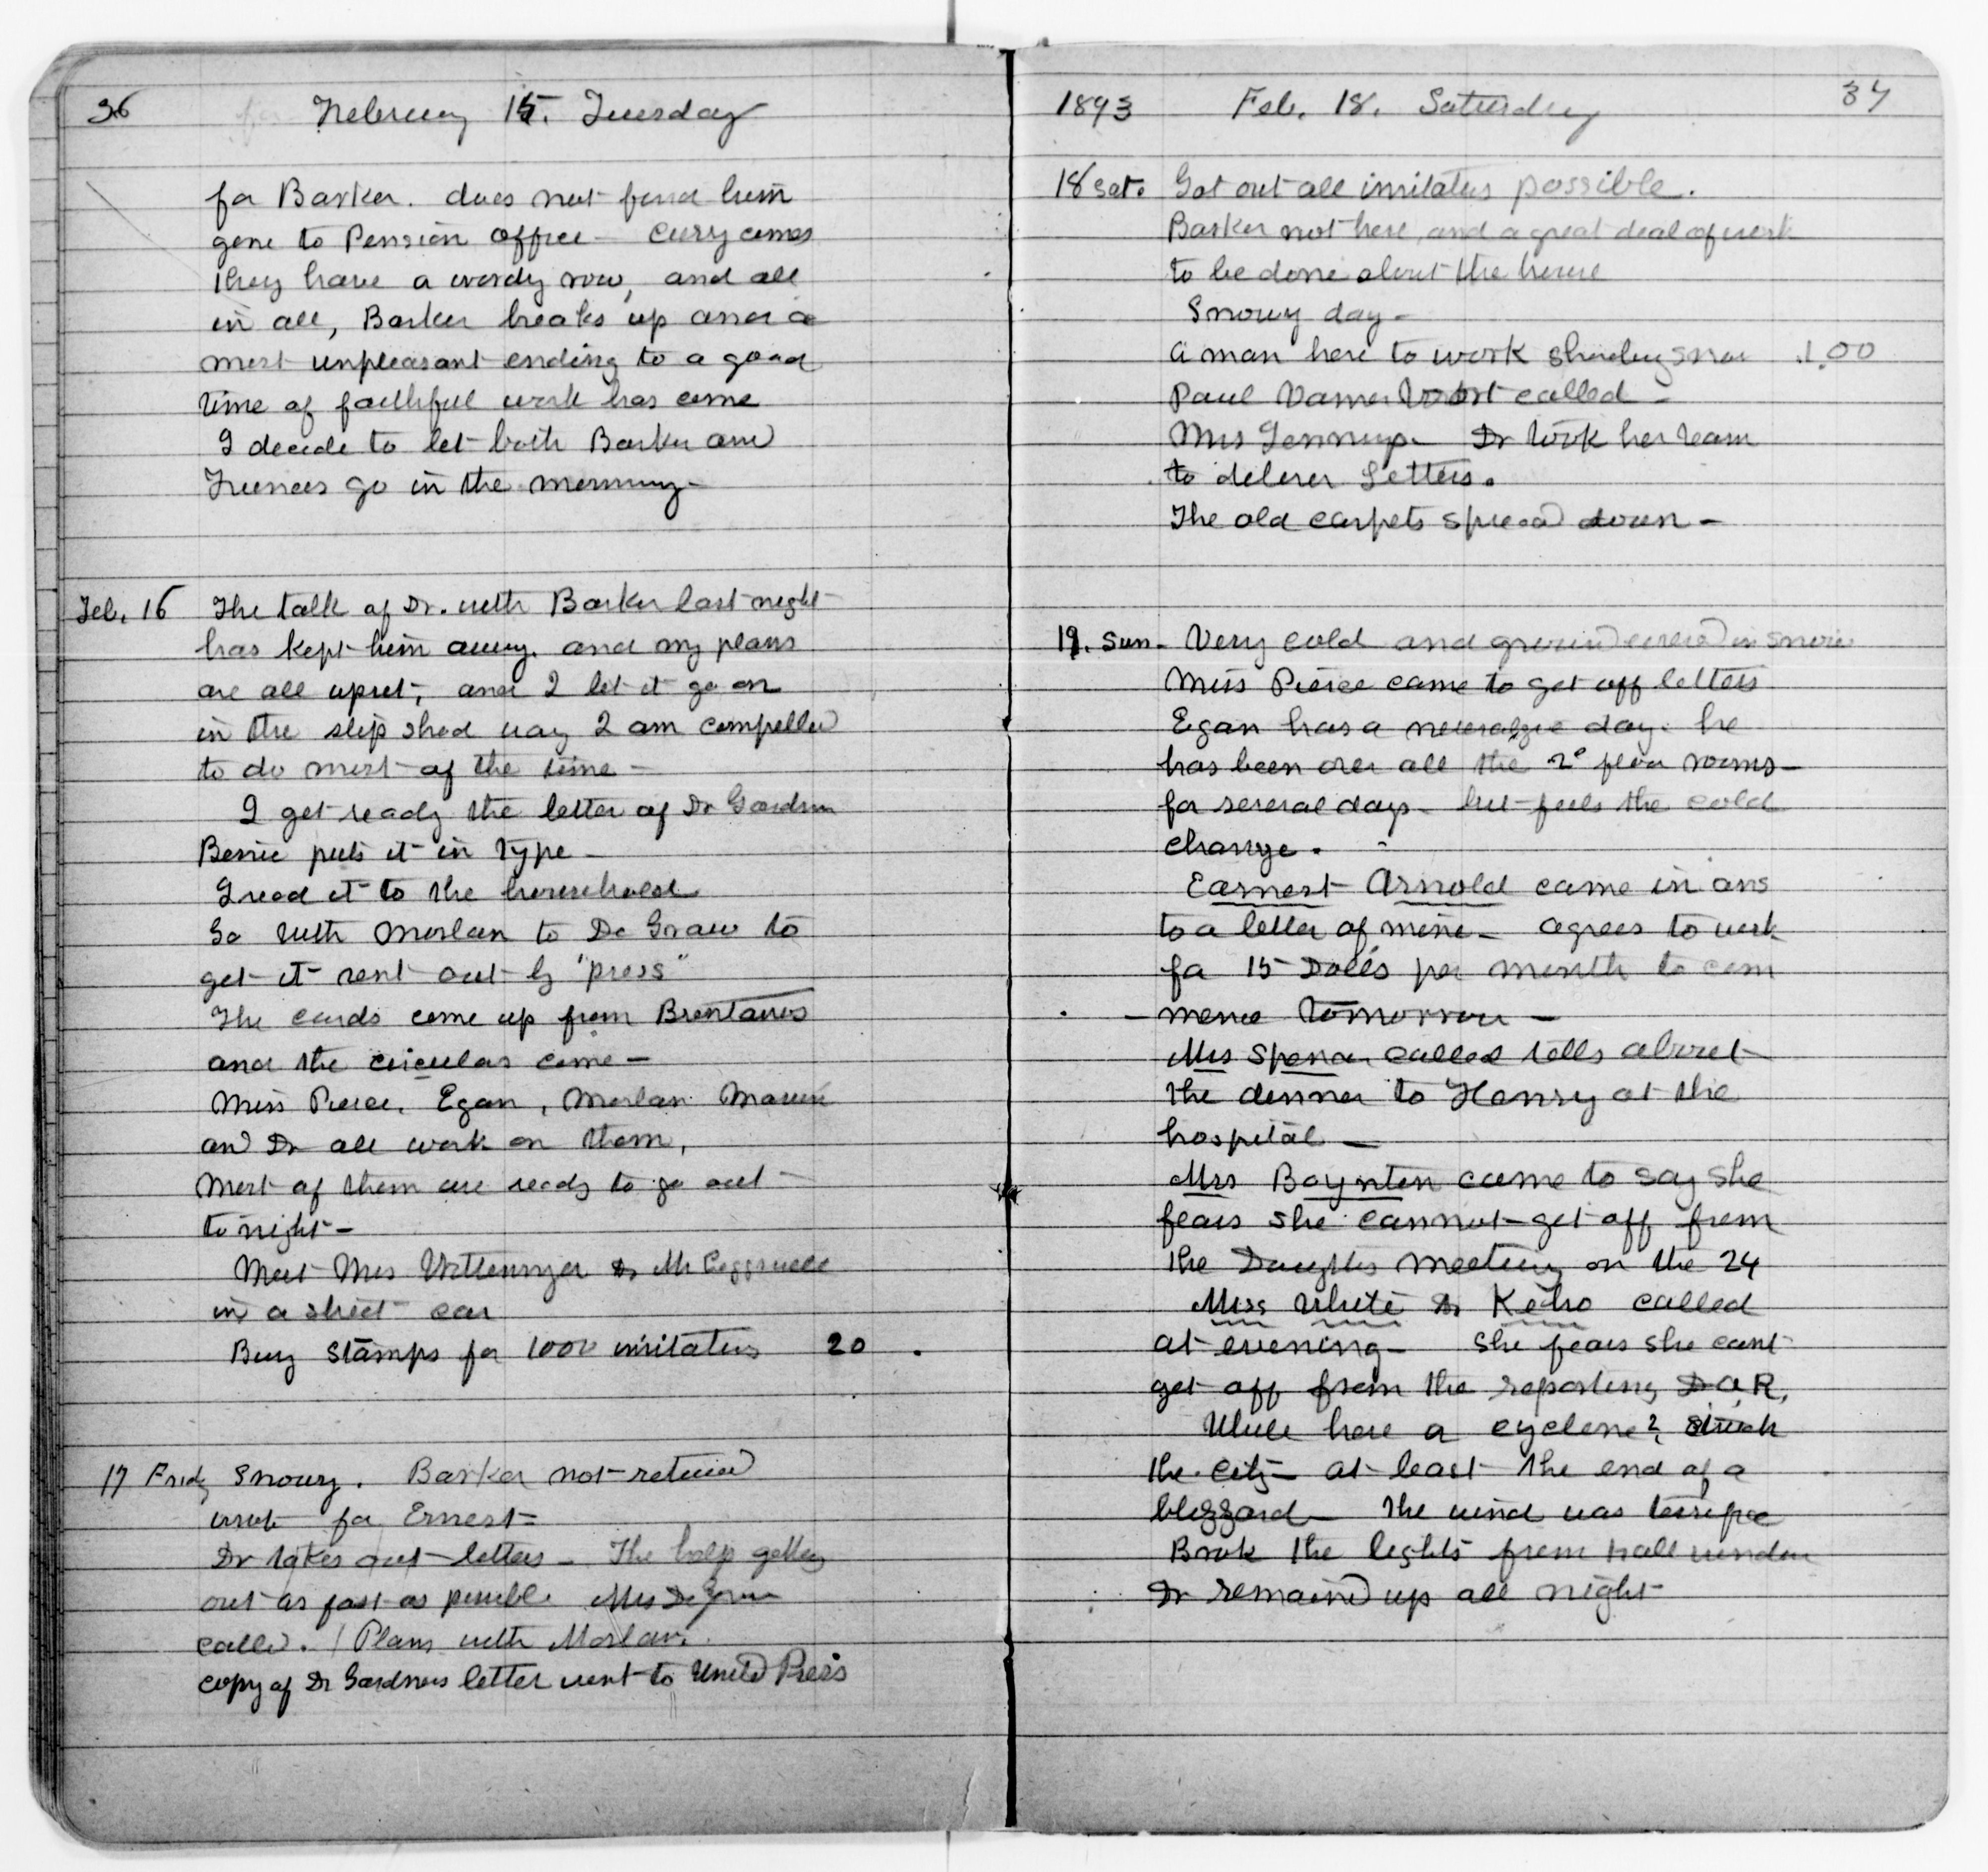 36 February 15. Tuesday
for Barker. does not find him
gone to Pension office - Curry comes
They have a wordy row, and all
in all, Barker breaks up and a
most unpleasant ending to a good
time of faithful work has come
I decide to let both Barker and
Frances go in the morning -
Feb. 16 The talk of Dr. with Barker last night
has kept him away. and my plans
are all upset, and I let it go on
in the slip shod way I am compelled
to do most of the time -
I get ready the letter of Dr Gardner
Bessie puts it in type -
I read it to the household
Go with Morlan to De Graw to
get it sent out by "press"
The cards come up from Brentanos
and the circulars come -
Miss Pierce, Egan, Morlan
and Dr all work on them,
Most of them are ready to go out -
to night -
Meet Mrs Wittenmyer & Mr
in a street car
Buy stamps for 1000 invitatins 20 .
17 Fridy Snowy. Barker not returned
wrote for Ernest =
Dr takes out letters - The help getting
out as fast as possible. Mrs De Graw
called. Plans with Morlan.
copy of Dr Gardners letter went to United Press
1893 Feb. 18. Saturday 37
18 Sat. Got out all invitatins possible.
Barker not here, and a great deal of work
to be done about the house
Snowy day -
a man here to work shoveling snow 1.00
Paul Vandervoort called -
Mrs Dr took her team
to deliver Letters.
The old carpets spread down -
19. Sun - Very cold and ground covered in snow
Miss Pierce came to get off letters
Egan has a neuralgic day. he
has been over all the 2° floor rooms -
for several days - but feels the cold
change. -
Earnest Arnold came in ans
to a letter of mine - agrees to work
for 15 Dolls per month to com
- mence tomorrow -
Mrs Spencer called tells about
the dinner to Henry at the
hospital -
Mrs Boynton came to say she
fears she cannot get off from
the Daughters meeting on the 24
Miss White & called
at evening - she fears she cant
get off from the reporting D A R,
While here a cyclone? struck
the city - at least the end of a
blizzard - the wind was terrific
Broke the lights from hall window
Dr remained up all night